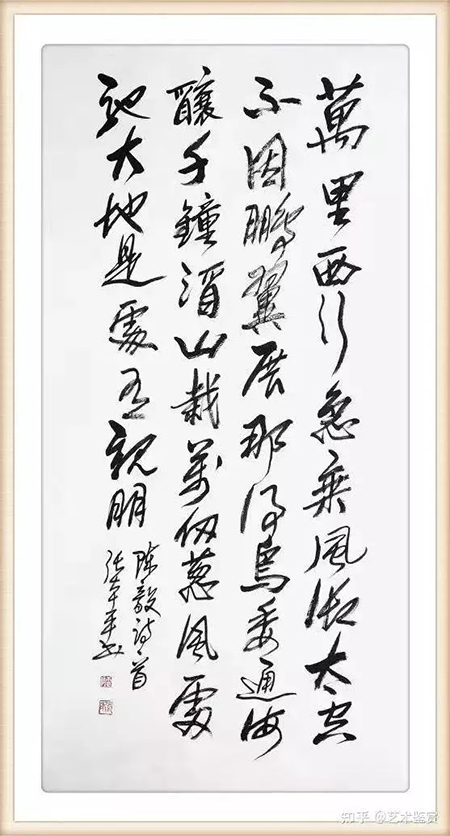 萬里西行急乘風御太空
不因鵬翼展那得鳥委通海
釀千鐘酒山栽萬仞蔥風雷
馳大地是處有親朋
陳毅詩一首
張平书
知乎 @艺术鉴赏